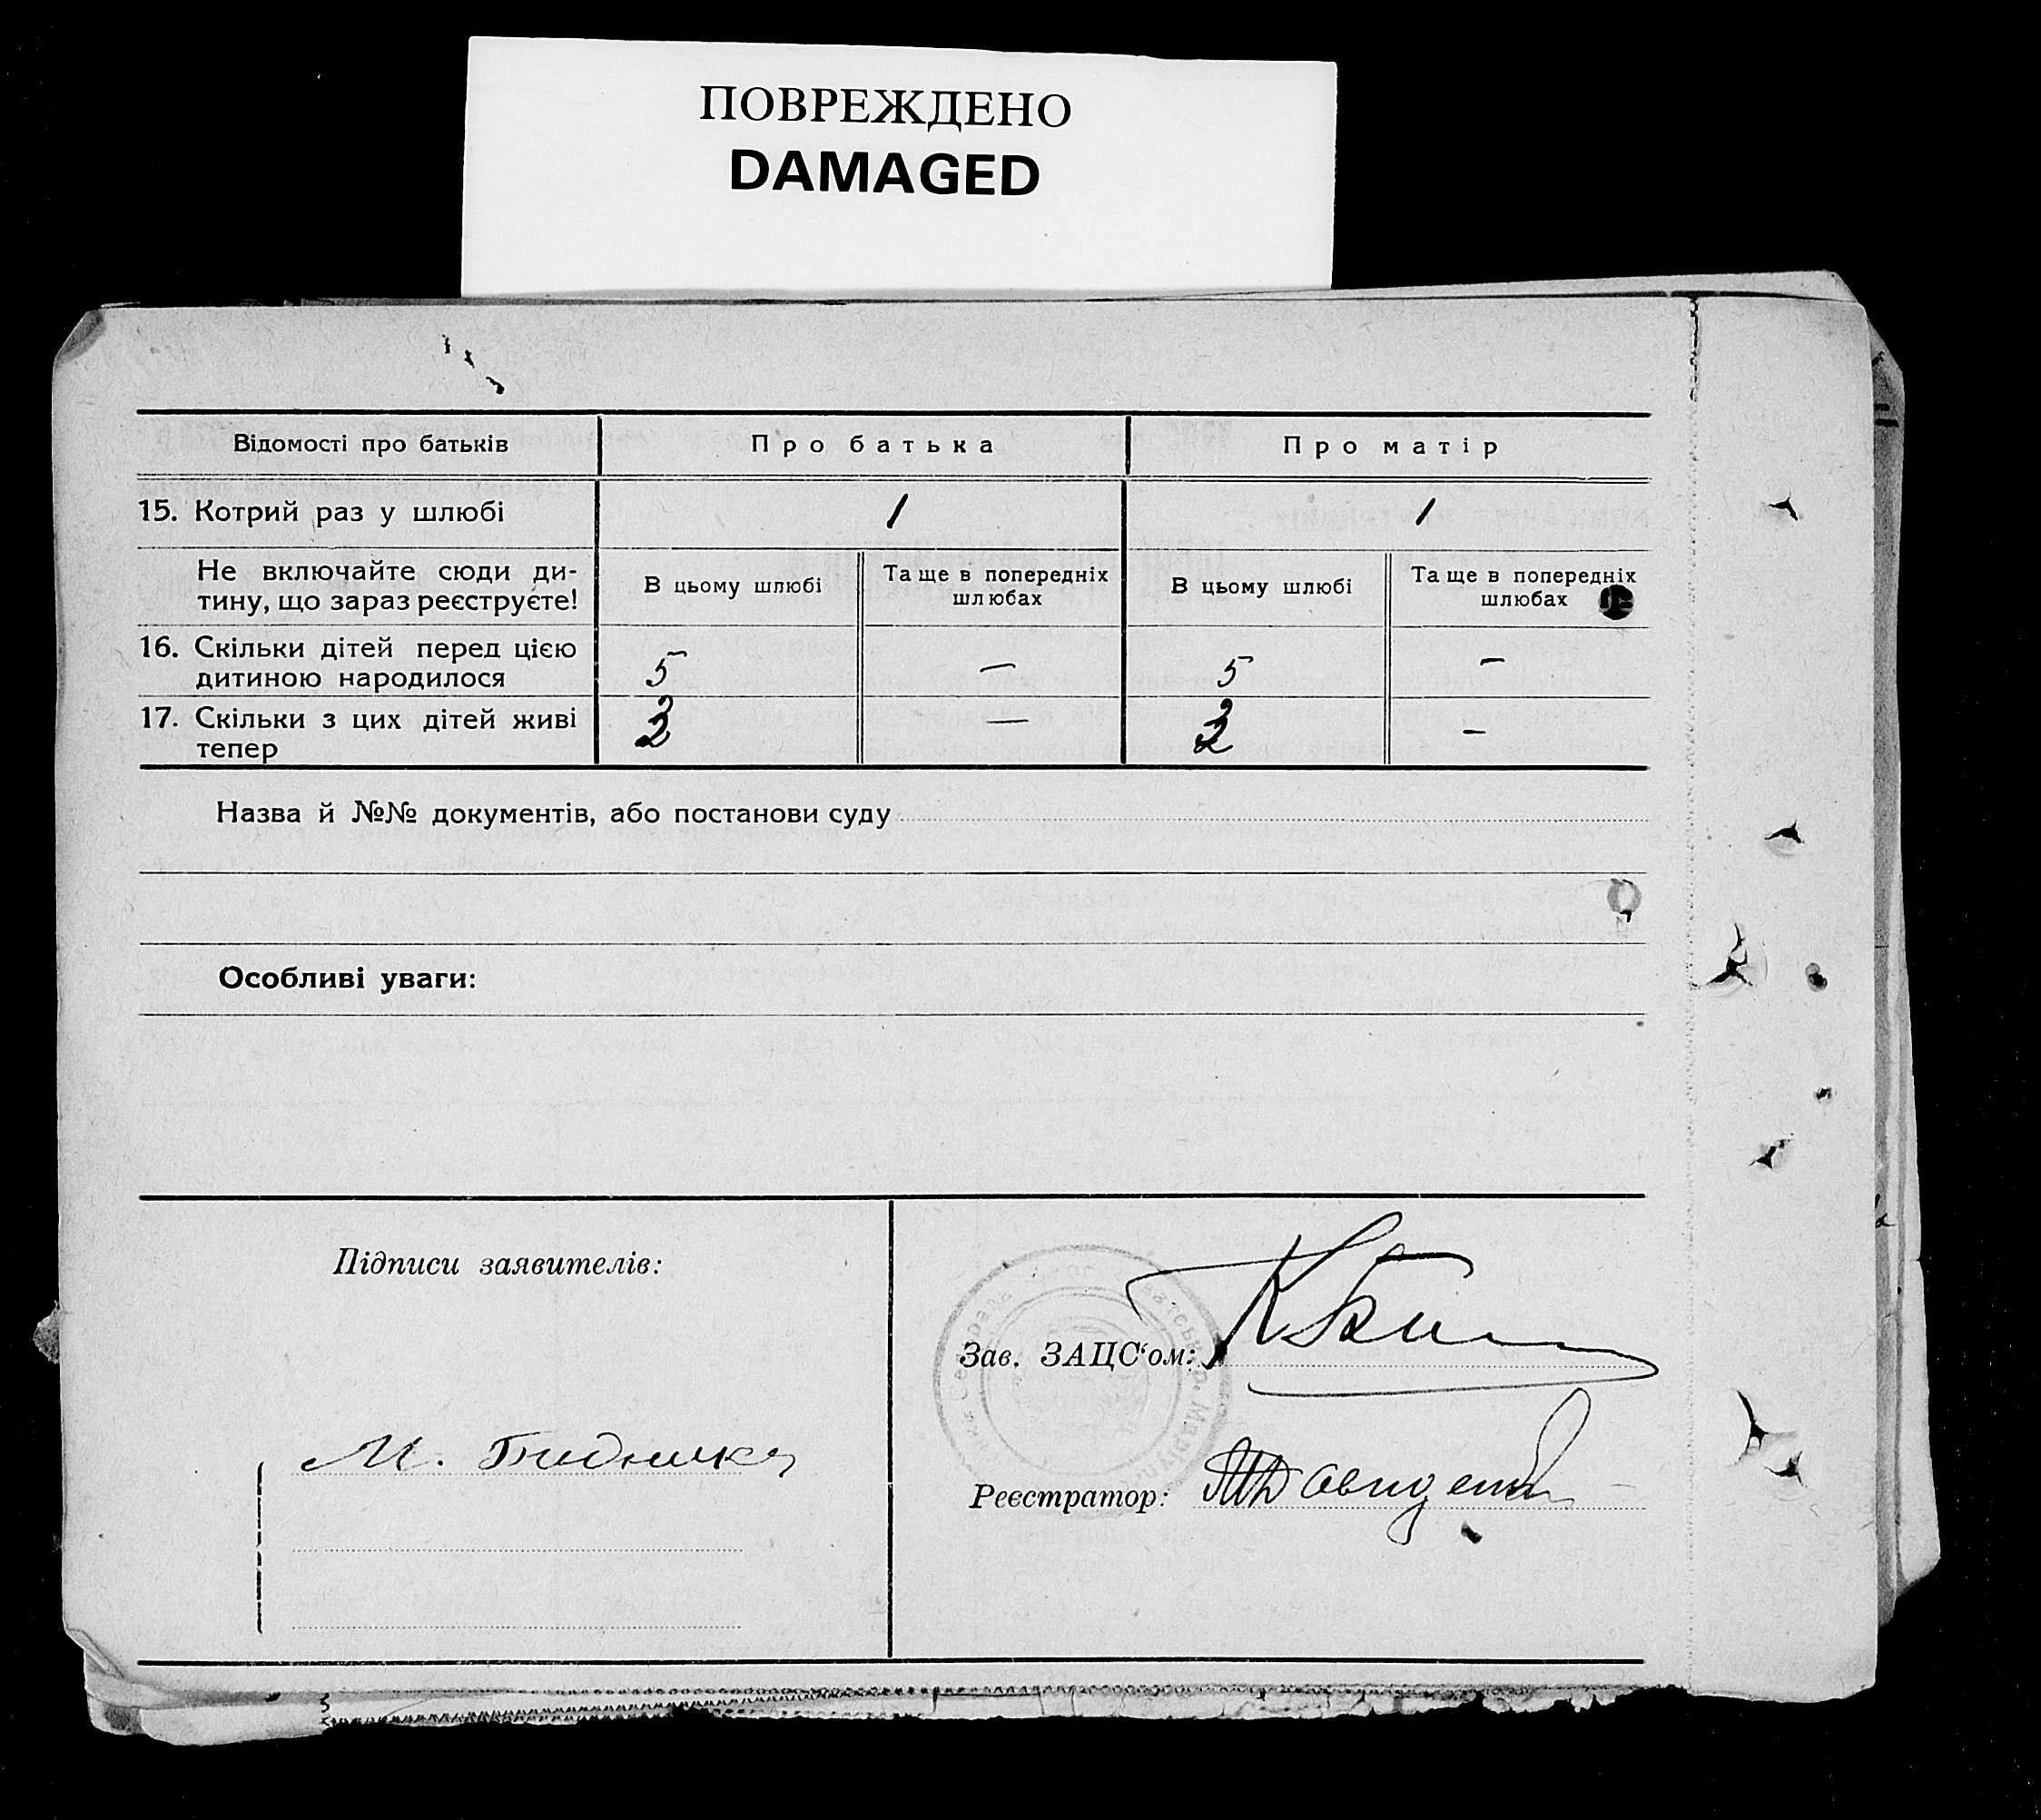 ПОВРЕЖДЕНО
DAMAGED
Відомості про батьків
Про батька
Про матір
15. Котрий раз у шлюбі
1
1
Не включайте сюди ди-
тину, що зараз реєструєте!
В цьому шлюбі
Та ще в попередніх
шлюбах
В цьому шлюбі
Та ще в попередніх
шлюбах
16. Скільки дітей перед цією
дитиною народилося
5
—
5
—
17. Скільки з цих дітей живі
тепер
—
—
Назва й №№ документів, або постанови суду
Особливі уваги:
Підписи заявителів:
М.
Зав. ЗАЦС‘ом:
Реєстратор: